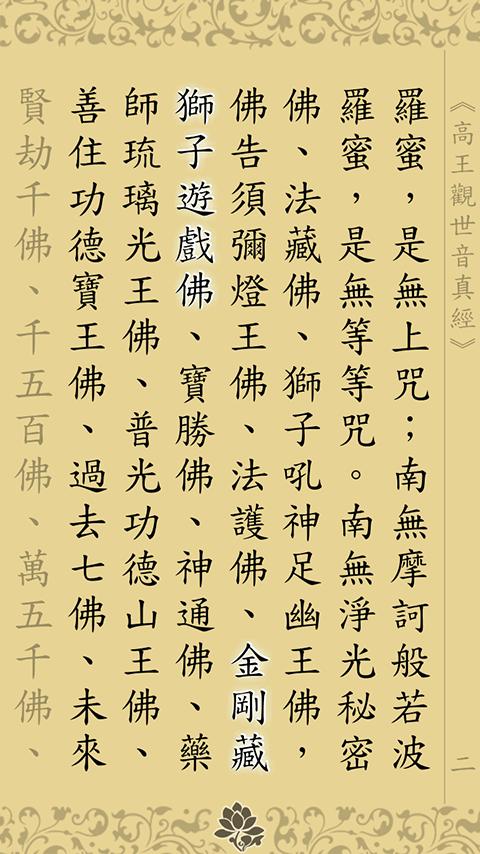 《高王觀世音真經》
二
羅蜜，是無上咒；南無摩訶般若波
羅蜜，是無等等咒。南無淨光秘密
佛、法藏佛、獅子吼神足幽王佛，
佛告須彌燈王佛、法護佛、金剛藏
獅子遊戲佛、寶勝佛、神通佛、藥
師琉璃光王佛、普光功德山王佛、
善住功德寶王佛、過去七佛、未來
賢劫千佛、千五百佛、萬五千佛、